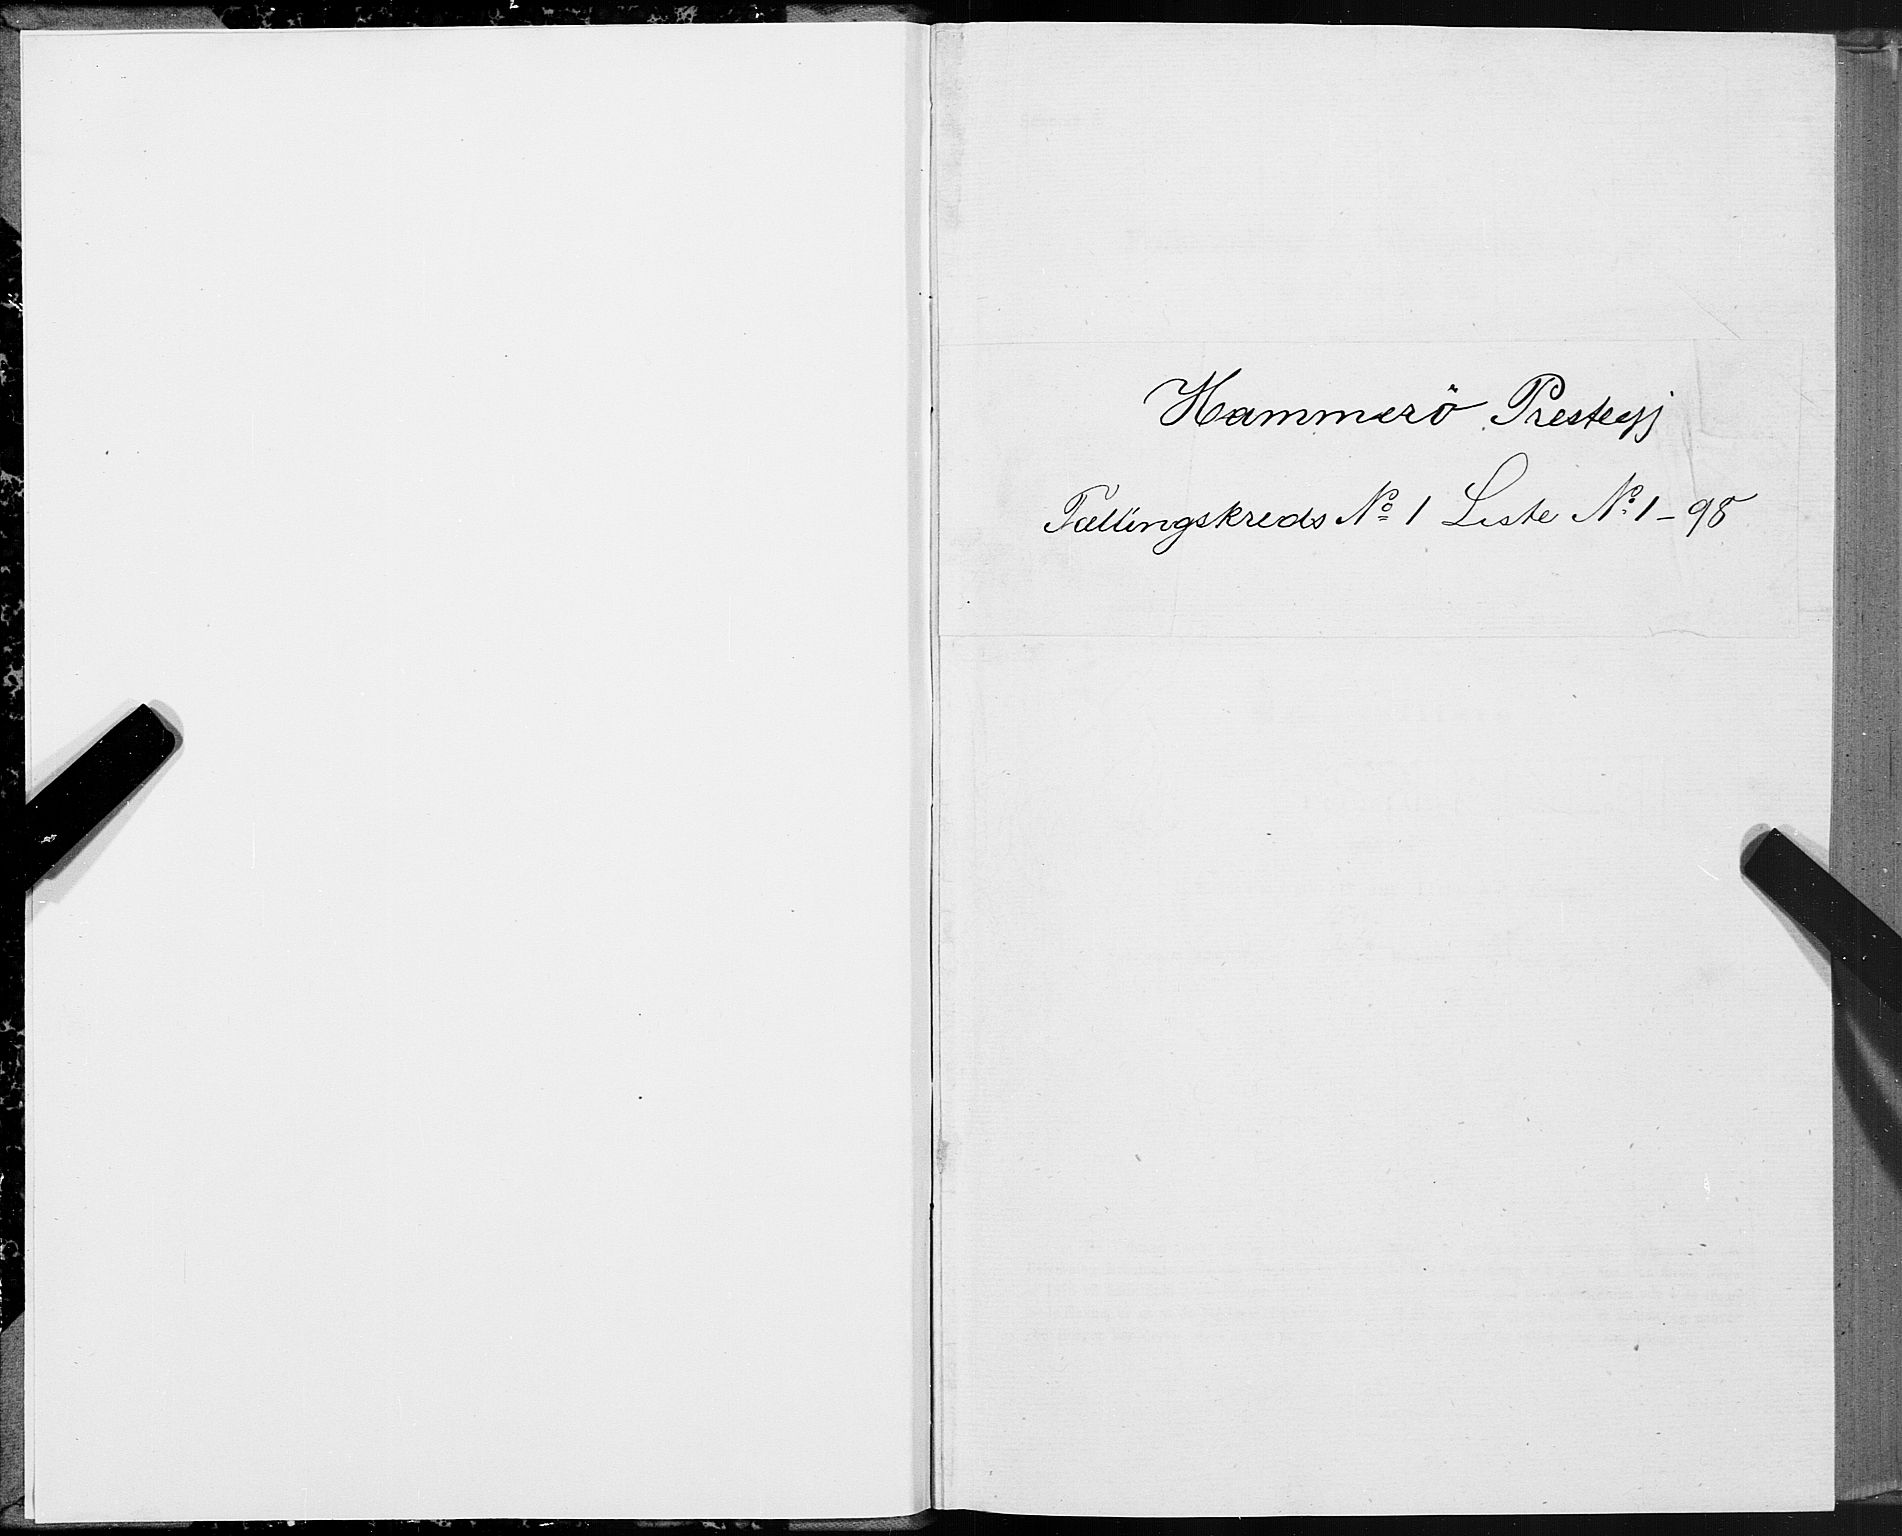 Hammerö Prestegj
Tællingskreds No 1 Liste No 1 - 98